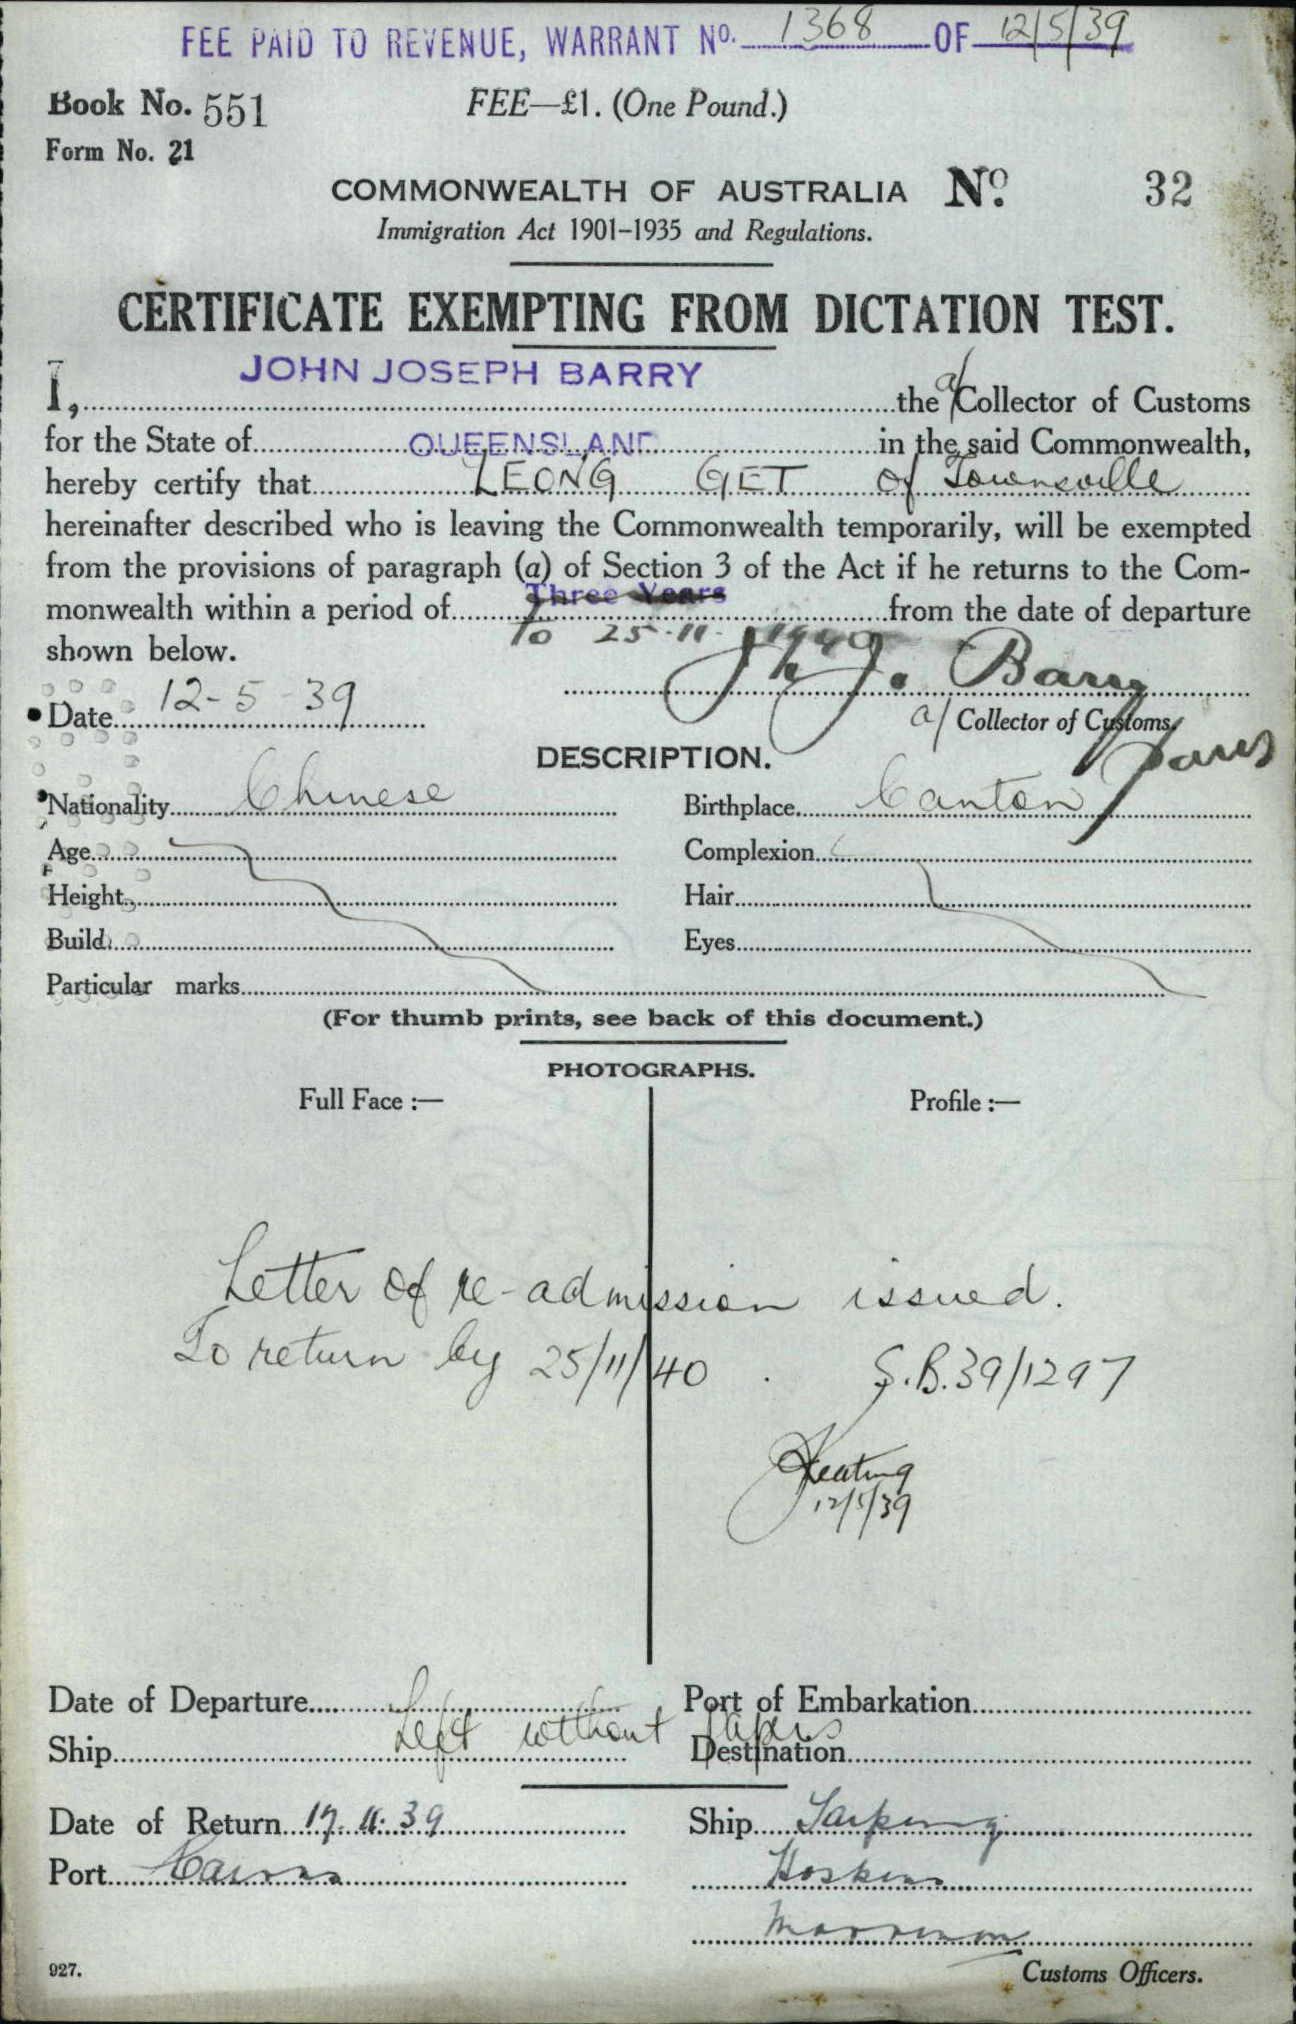 FEE PAID TO REVENUE, WARRANT No. 1368 OF 12/5/39
Book No. 551 FEE—£1. (One Pound.)
Form No. 21
COMMONWEALTH OF AUSTRALIA No. 32
Immigration Act 1901–1935 and Regulations.
CERTIFICATE EXEMPTING FROM DICTATION TEST.
JOHN JOSEPH BARRY
I, the a/ Collector of Customs
for the State of QUEENSLAND in the said Commonwealth,
hereby certify that LEONG GET of Townsville
hereinafter described who is leaving the Commonwealth temporarily, will be exempted
from the provisions of paragraph (a) of Section 3 of the Act if he returns to the Com-
monwealth within a period of Three Years from the date of departure
To 25.11.1940
shown below.
J. J. Barry
Date 12-5-39 a/ Collector of Customs.
DESCRIPTION.
Nationality Chinese Birthplace Canton
Age Complexion
Height Hair
Build Eyes
Particular marks
(For thumb prints, see back of this document.)
PHOTOGRAPHS.
Full Face :— Profile :—
Letter of re-admission issued.
To return by 25/11/40. S.B.39/1297
Keating
12/5/39
Date of Departure Port of Embarkation
Left without papers
Ship Destination
Date of Return 17.11.39 Ship Taiping
Port Cairns Hoskins
927. Customs Officers.